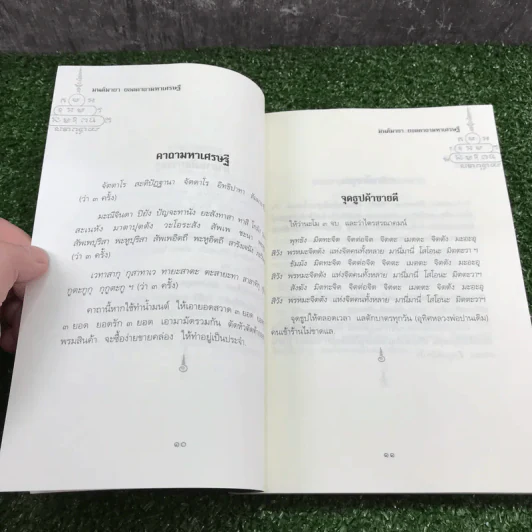 มนต์คาถา ยอดคาถามหาเศรษฐี
คาถามหาเศรษฐี
จัตตาโร สะติปัฏฐานา จัตตาโร อิทธิปาทา
(ว่า ๓ ครั้ง)
มะณีจินดา ปิยัง ปัญจะหานัง ยะสังทาสา ทาสี
สะเนหัง มาตาปุตตัง วะโอระสัง สัพเพ ชะนา
สัพเพปุริสา พะหูปุริสา สัพเพอิตถี พะหูอิตถี
(ว่า ๓ ครั้ง)
เวทาสากุ กุสาทาเว ทายะสาตะ ตะสายะทา สาสาทิกุ
กูตะกูภู ภูกูตะกู ฯ (ว่า ๓ ครั้ง)
คาถานี้หากใช้ทำน้ำมนต์ ให้เอายอดสวาด ๓ ยอด
๓ ยอด ยอดรัก ๓ ยอด เอามามัดรวมกัน ตัดหัวตัด
พรมสินค้า จะซื้อง่ายขายคล่อง ให้ทำอยู่เป็นประจำ
๑๐
มนต์คาถา ยอดคาถามหาเศรษฐี
จุดธูปค้าขายดี
ให้ว่านะโม ๓ จบ และว่าไตรสรณาคมน์
พุทธัง มิตทะจิต จิตต่อจิต จิตตะ เมตตะ จิตตัง มะอะอุ
สิวัง พรหมะจิตตัง แห่งจิตคนทั้งหลาย มานีมานี่ โสโอนะ มิตตะวา ฯ
ธัมมัง มิตทะจิต จิตต่อจิต จิตตะ เมตตะ จิตตัง มะอะอุ
สิวัง พรหมะจิตตัง แห่งจิตคนทั้งหลาย มานีมานี่ โสโอนะ มิตตะวาฯ
สังฆัง มิตทะจิต จิตต่อจิต จิตตะ เมตตะ จิตตัง มะอะอุ
สิวัง พรหมะจิตตัง แห่งจิตคนทั้งหลาย มานีมานี่ โสโอนะ มิตตะวาฯ
จุดธูปให้ตลอดเวลา แลตักบาตรทุกวัน (อุทิศหลวงพ่อปานเดิม)
คนเข้าร้านไม่ขาดแล
๑๑